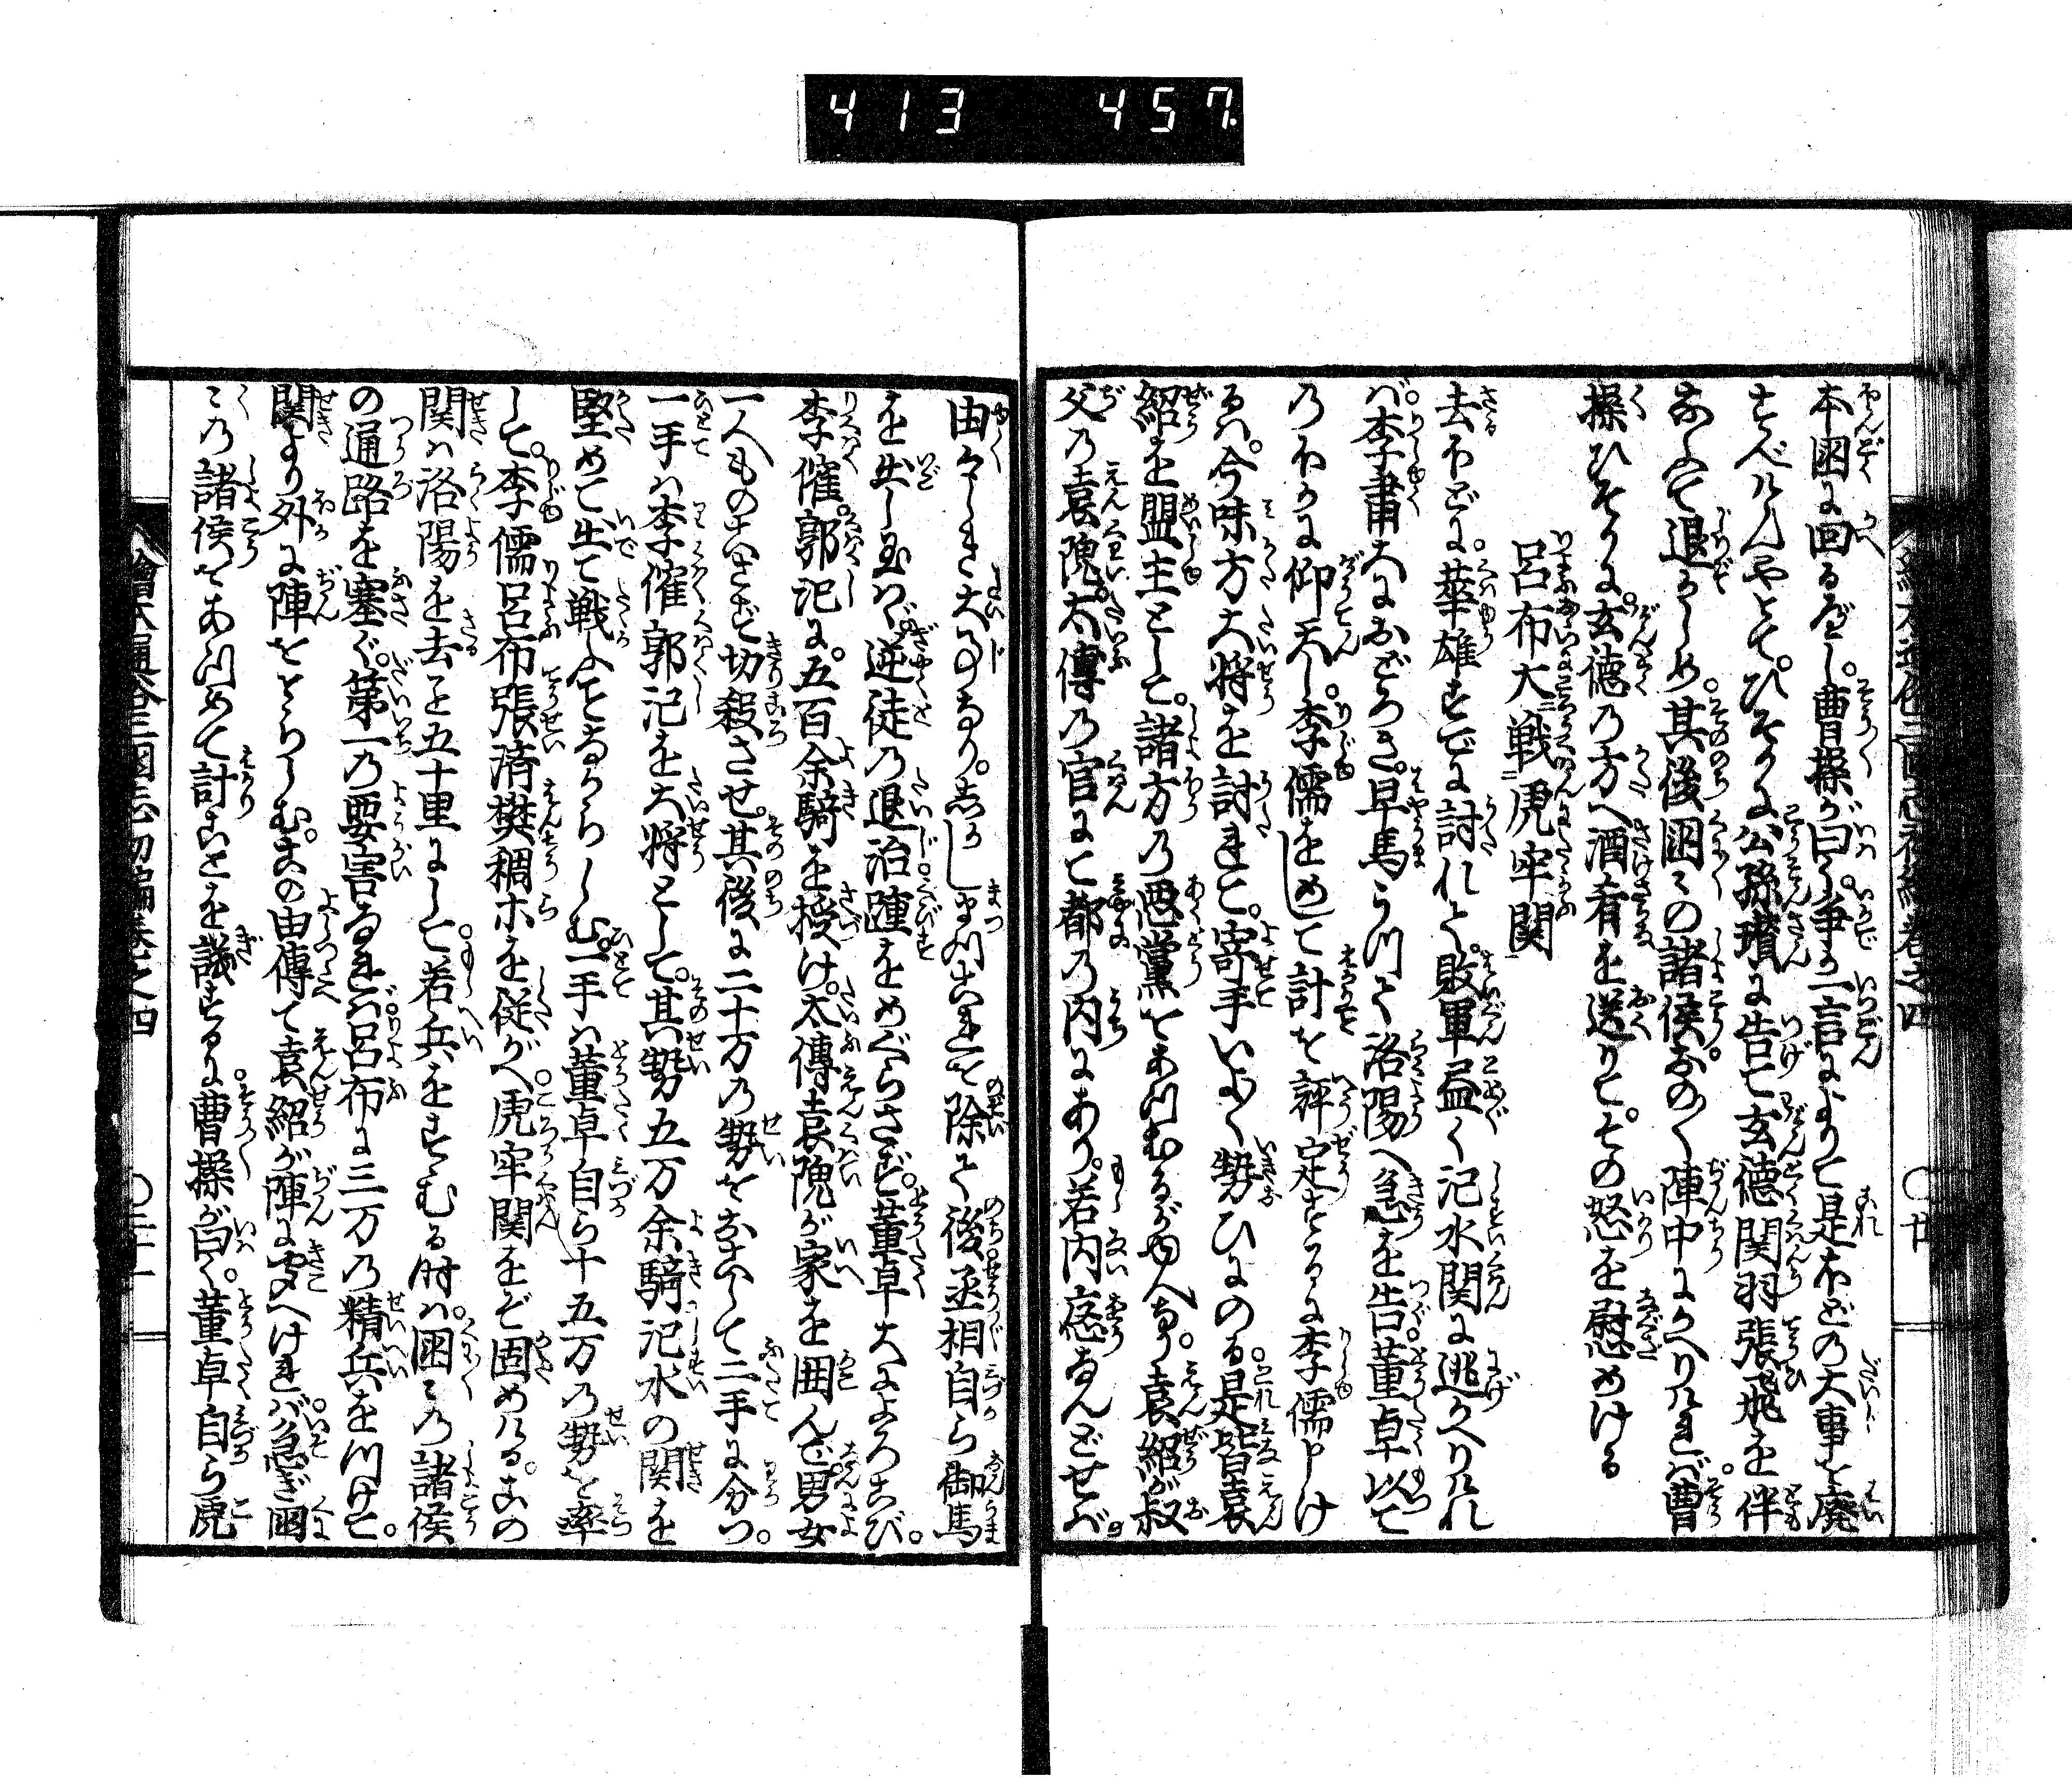 413 457
本国に回るべし。曹操が曰く、争か一言によりて是ほどの大事を廃
すべけんやとて、ひそかに公孫瓚に告て玄徳関羽張飛を伴
なふて退かしめ。其後国々の諸侯。おの〳〵陣中にかへりければ。曹
操ひそかに。玄徳の方へ酒肴を送りて。その怒を慰めける
呂布大戦虎牢関
去ほどに。華雄すでに討れて。敗軍尽く汜水関に逃かへりけれ
ば。李粛大におどろき。早馬うつて洛陽へ急を告。董卓以て
のほかに仰天し。李儒をしめて計を評定するに李儒申け
るは。今味方大将を討れて。寄手いよ〳〵勢ひにのる。是皆袁
紹を盟主として。諸方の悪黨をあつむるがゆへなり。袁紹が叔
父の袁隗。太傅の官にて都の内にあり。若内応なんどせば
由々しき大事なり。しかしまづこれを除て後丞相自ら御馬
を出し玉はゞ。逆徒の退治踵をめぐらさじ。董卓大によろこび。
李傕。郭汜に。五百余騎を授け。太傅袁隗が家を囲んで男女
一人ものこさず切殺させ。其後に二十万の勢をおこして二手に分つ。
一手は李傕郭汜を大将として。其勢五万余騎汜水の関を
堅めて出て戦ふことなからしむ。一手は董卓自ら十五万の勢を率
して。李儒呂布張済樊稠ホを従がへ。虎牢関をぞ固めける。この
関は洛陽を去こと五十里にして。若兵をすゝむる時は。国々の諸侯
の通路を塞ぐ。第一の要害なれば。呂布に三万の精兵をつけて。
関より外に陣をとらしむ。この由傳て袁紹が陣に聞へければ。急ぎ国
々の諸侯をあつめて計ことを議するに。曹操が曰く。董卓自ら虎
繪本通俗三国志初編巻之四